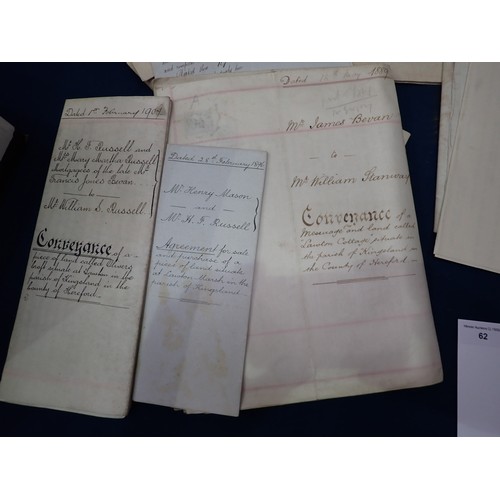 Dated 1st February 190
Mr H. F. Russell and
Mrs Mary Martha Russell
Mortgagees of the late Mr
Francis James Bevan
to
Mr William S. Russell
Conveyance of a
piece of land called
croft situate at in the
parish of Kingsland in the
County of Hereford
Dated 28th February
Mr Henry Mason
and
Mr H. F. Russell
Agreement for sale
and purchase of a
piece of land situate
at Lawton Marsh in the
parish of Kingsland
Dated May 18
Mr James Bevan
to
Mr William Stanway
Conveyance of a
Messuage and land called
Lawton Cottage situate in
the parish of Kingsland in
the County of Hereford
62